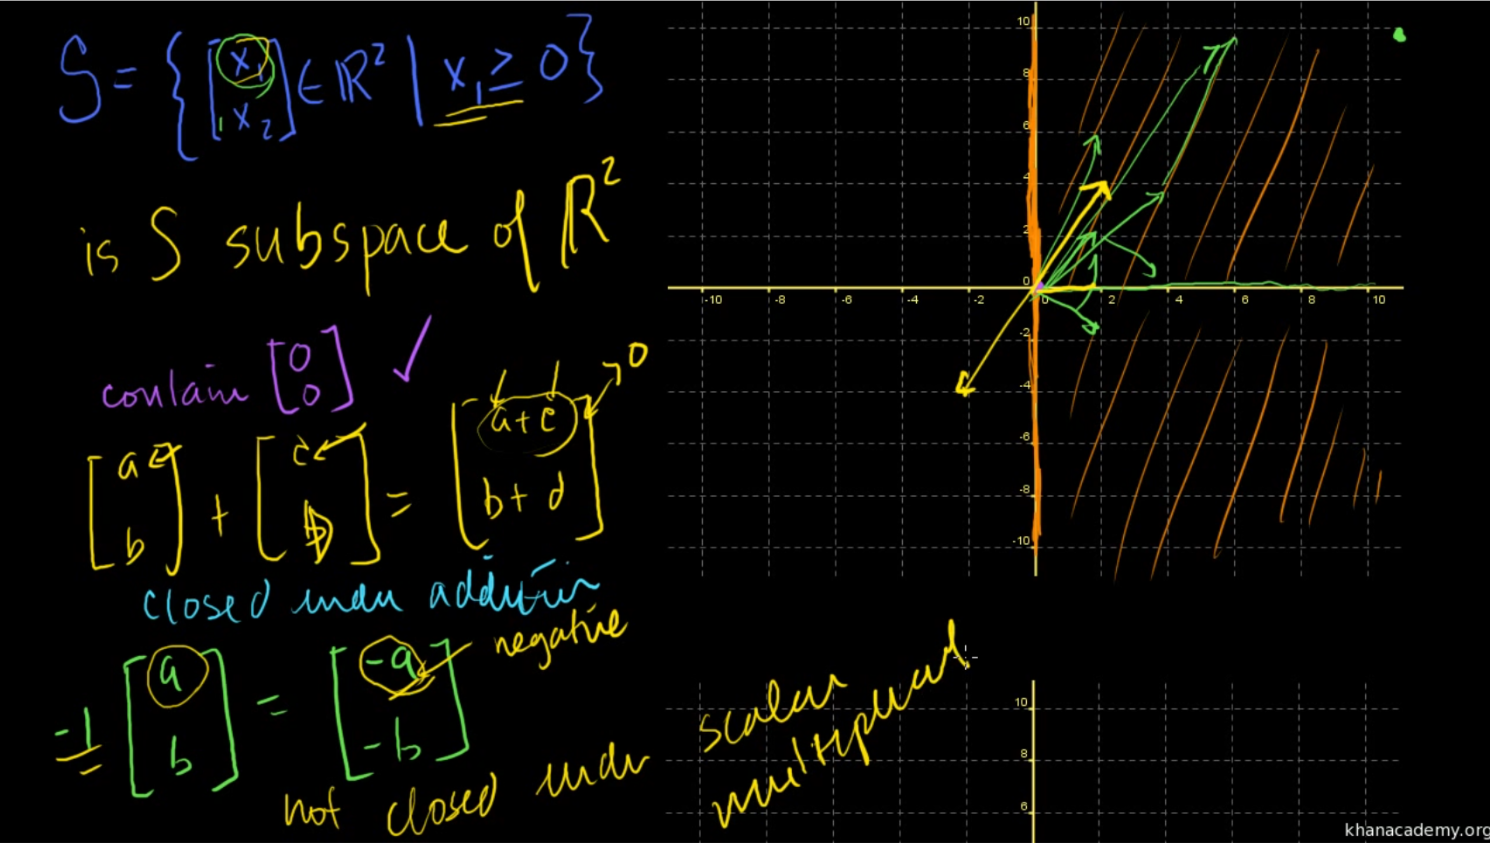 S = { [x₁ x₂] ∈ ℝ² | x₁ ≥ 0 }
is S subspace of ℝ²
contain [0 0] ✓
[a b] + [c d] = [a+c b+d] → 0
closed under addition
-1 [a b] = [-a -b] negative
not closed under scalar
multiplicat
10
8
6
4
2
0
-10 -8 -6 -4 -2 0 2 4 6 8 10
-2
-4
-6
-8
-10
10
8
6
khanacademy.org